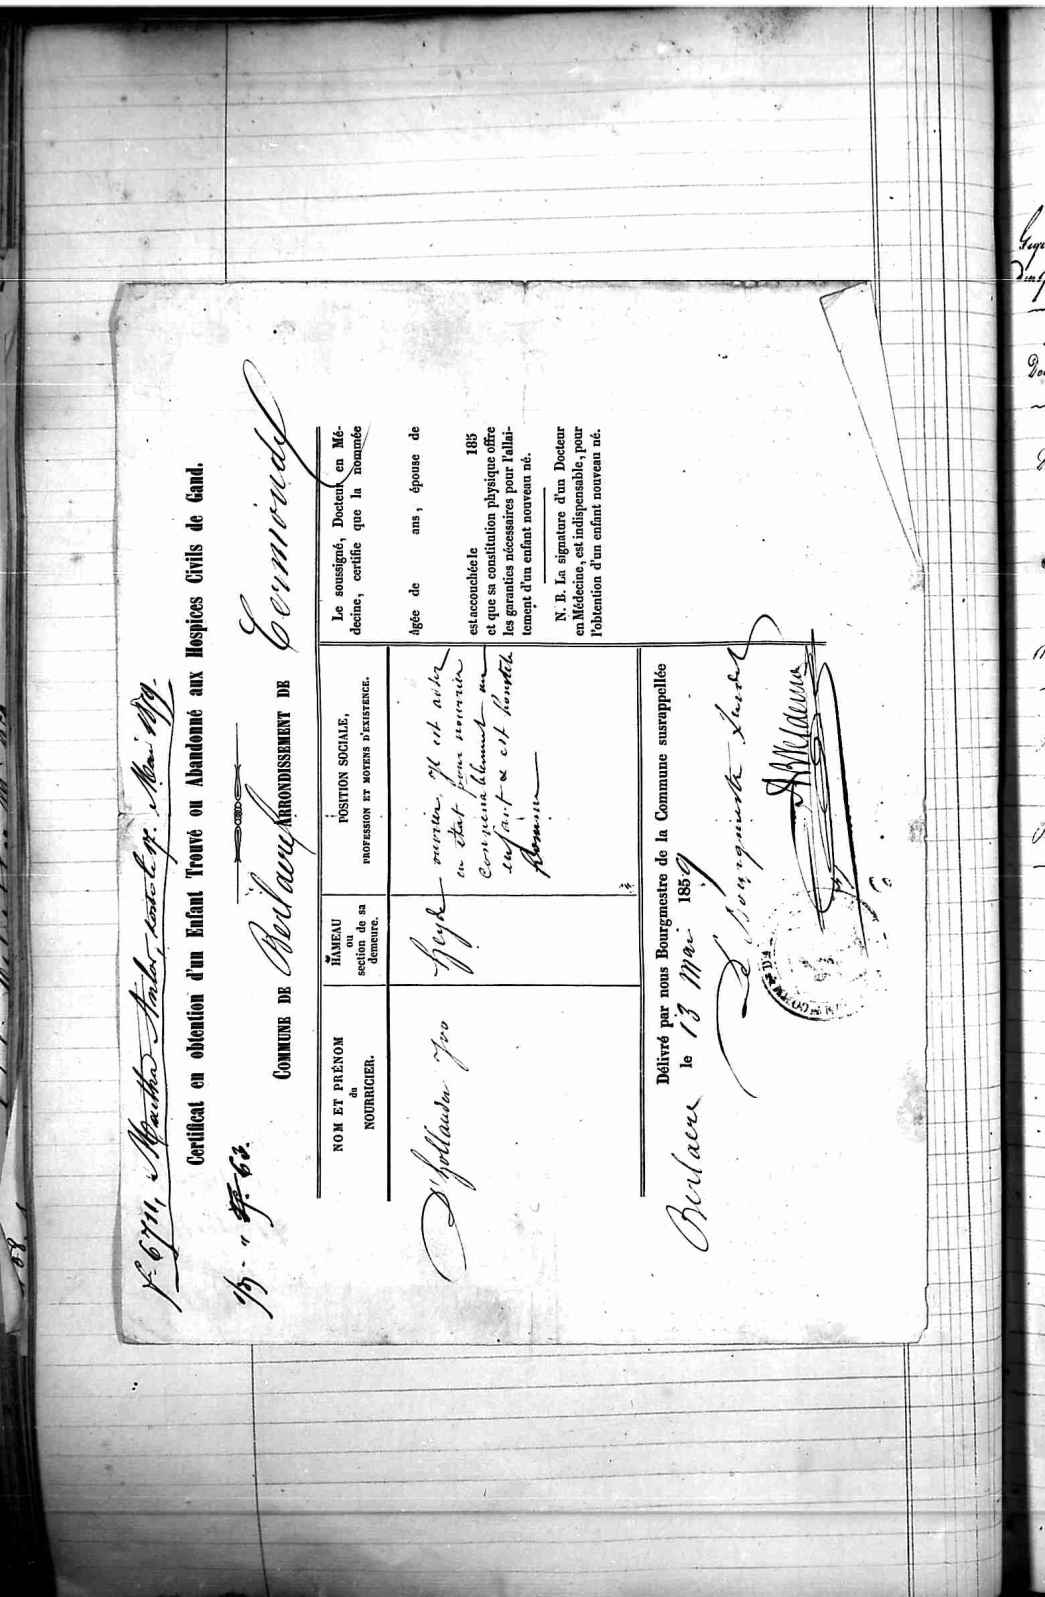 f° 6711, Martha
Mai 1859.
Certificat en obtention d'un Enfant Trouvé ou Abandonné aux Hospices Civils de Gand.
63.
COMMUNE DE Berlaere ARRONDISSEMENT DE Termonde
NOM ET PRÉNOM
du
NOURRICIER.
HAMEAU
ou
section de sa
demeure.
POSITION SOCIALE,
PROFESSION ET MOYENS D'EXISTENCE.
D'hollander Ivo
Heyde
ouvrier, il est assez
en état pour nourrir
convenablement un
enfant et est honnête
homme
Le soussigné, Docteur en Mé-
decine, certifie que la nommée
âgée de ans, épouse de
est accouchée le 185
et que sa constitution physique offre
les garanties nécessaires pour l'allai-
tement d'un enfant nouveau né.
N. B. La signature d'un Docteur
en Médecine, est indispensable, pour
l'obtention d'un enfant nouveau né.
Délivré par nous Bourgmestre de la Commune susrappellée
Berlaere le 13 Mai 1859
Le bourgmestre